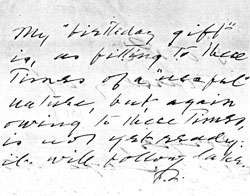 My "birthday gift"
is, as fitting to these
Times of a "useful
nature, but again
owing to these Times
is not yet ready.
it will follow later.